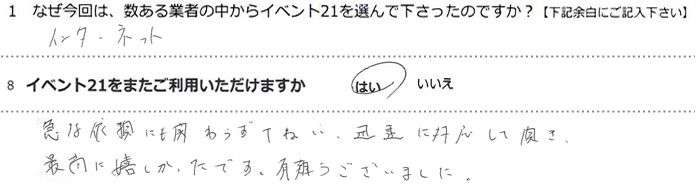 1 なぜ今回は、数ある業者の中からイベント21を選んで下さったのですか？【下記余白にご記入下さい】
インターネット
8 イベント21をまたご利用いただけますか はい いいえ
急な依頼にも関わらずていねい、迅速に対応して頂き、
最高に嬉しかったです。有難うございました。